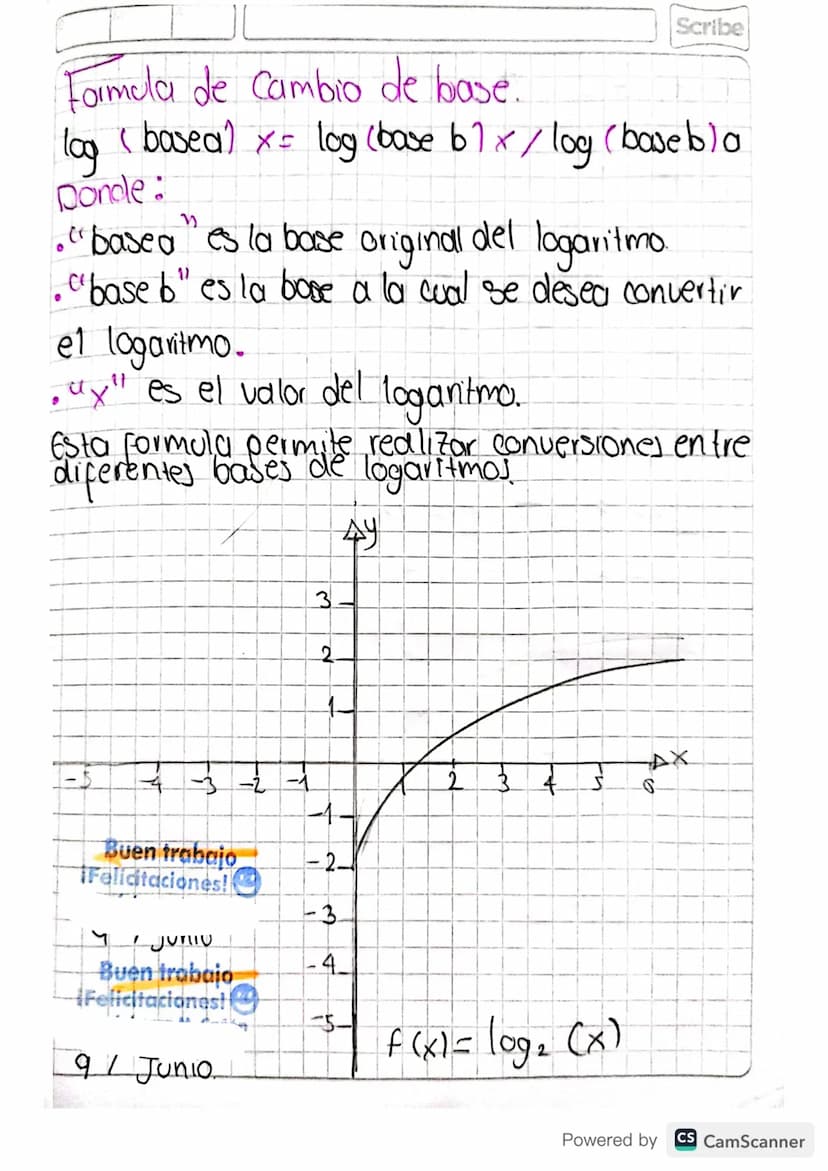 Scribe
Formula de Cambio de base.
log (base a) x = log (base b) x / log (base b) a
Donde:
."base a" es la base original del logaritmo.
."base b" es la base a la cual se desea convertir
el logaritmo.
."x" es el valor del logaritmo.
Esta formula permite realizar conversiones entre
diferentes bases de logaritmos.
y
3
2
1
x
-5 -4 -3 -2 -1 1 2 3 4 5 6
-1
-2
-3
-4
-5
Buen trabajo
¡Felicitaciones!
Junio
Buen trabajo
¡Felicitaciones!
9 / Junio.
f(x) = log₂ (x)
Powered by CS CamScanner